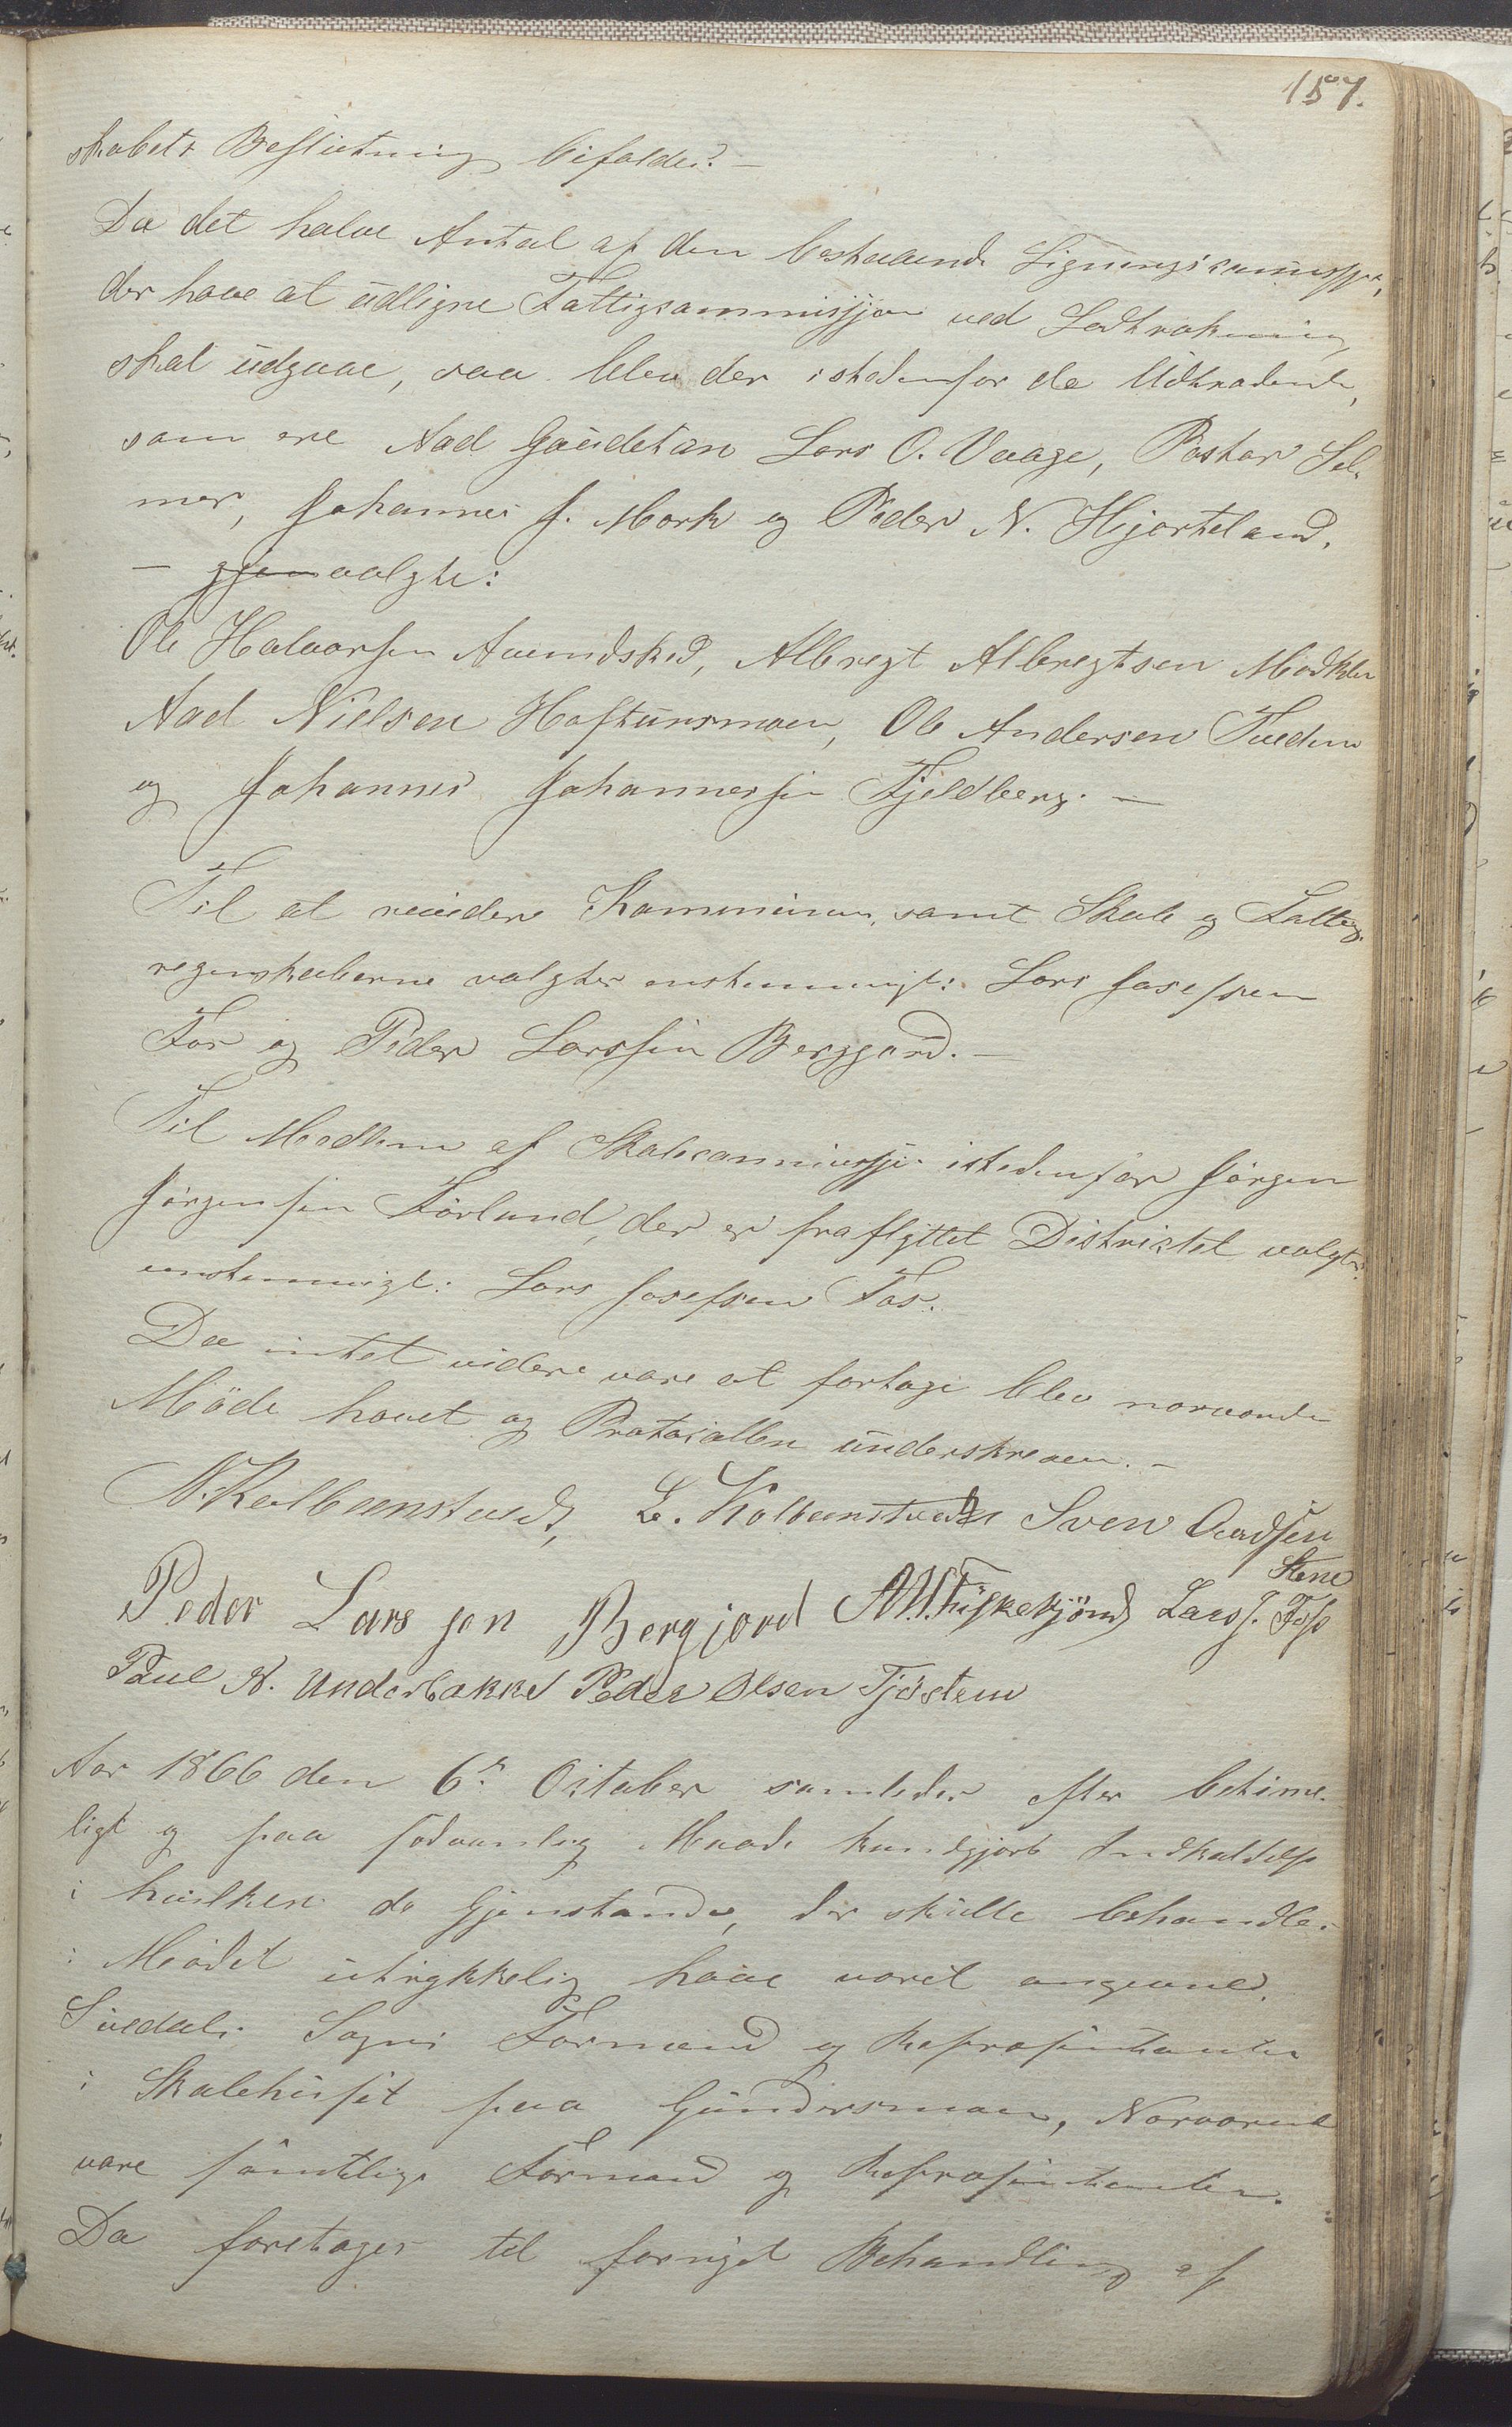 157.
skabets Beslutning bifaldes? —
Da det halve Antal af den bestaaende Ligningscommissjon,
der have at udligne Fattigcommissjon ved Lodtrækning
skal udgaae, saa blev der istedenfor de Udtrædende,
som ere Aad Gaudetun Lars O. Vaage, Pastor Sel-
mer, Johannes J. Mork og Peder N. Hjorteland.
— gjenvalgte:
Ole Halvorsen Aaendsked, Albregt Albregtsen
Aad Nielsen Hoftunsmoen, Ole Andersen Tveden
og Johannes Johannessen Fjeldberg. —
Til at revidere Kommunens, samt Skole og Fattig-
regnskaberne valgtes enstemmigt: Lars Josefsen
Fos og Peder Larssen Berggord. —
Til Medlem af Skolecommissjon istedenfor Jørgen
Jørgensen Førlund, der er fraflyttet Districtet valgtes
enstemmigt: Lars Josefsen Fos.
Da intet videre vare at fortage blev nærværende
Møde hævet og Protocollen underskreven. —
N. Kolbeenstvedt, L. Kolbeenstvedt Sven Aadsen
Stene
Peder Lars sen Bergjord A. W. Fiskekjønd Lars J. Foss
Paul N. Underbakke Peder Olsen Tjøstem
Aar 1866 den 6te October samledes efter betime-
ligt og paa sædvanlig Maade kundgjort Indkaldelse
i hvilken de Gjenstande, der skulle behandles
i Mødet utrykkelig have været angivne,
Suedals Sogns Formænd og Repræsentanter
i Skolehuset paa Gundersmoen, Nærværende
vare samtlige Formænd og Repræsentanter.
Da foretages til fornyet Behandling af